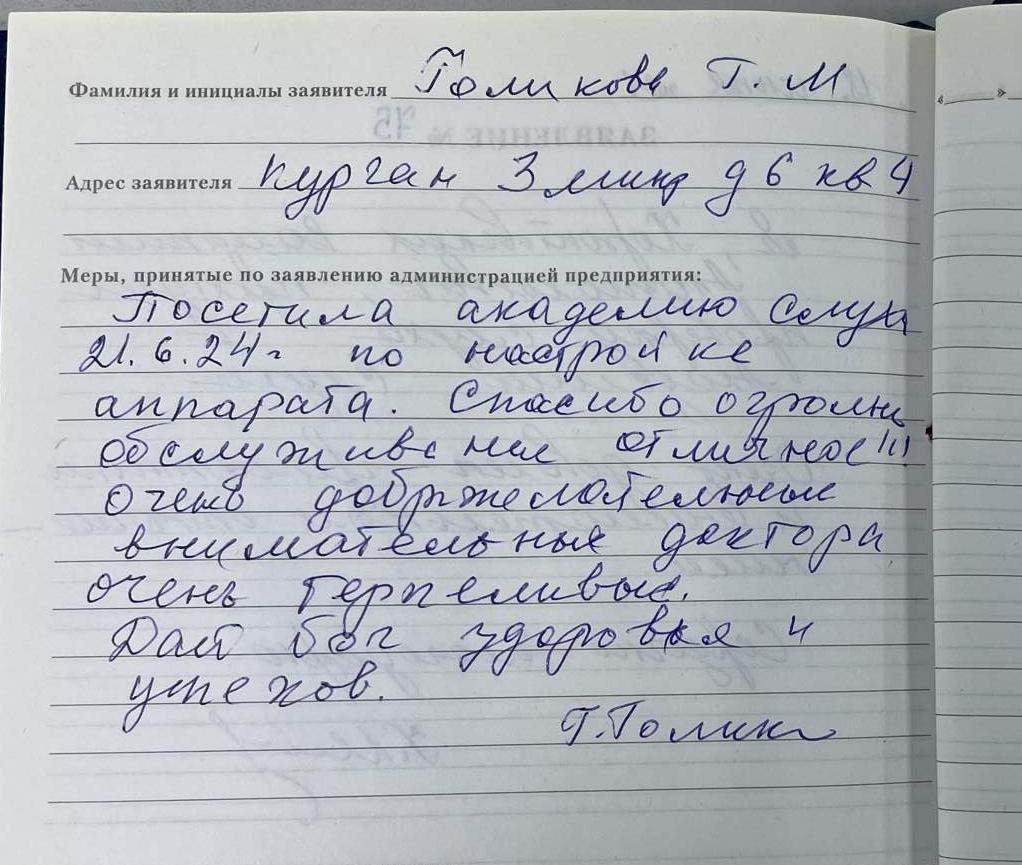 Фамилия и инициалы заявителя Голикова Г. М
Адрес заявителя Курган 3 мкнр д 6 кв 4
Меры, принятые по заявлению администрацией предприятия:
Посетила академию слуха
21.6.24г по настройке
аппарата. Спасибо огромн
обслуживание отличное!!!
очень доброжелательные
внимательные доктора
очень терпеливые.
Дай бог здоровья и
успехов.
Г.Голик
« »